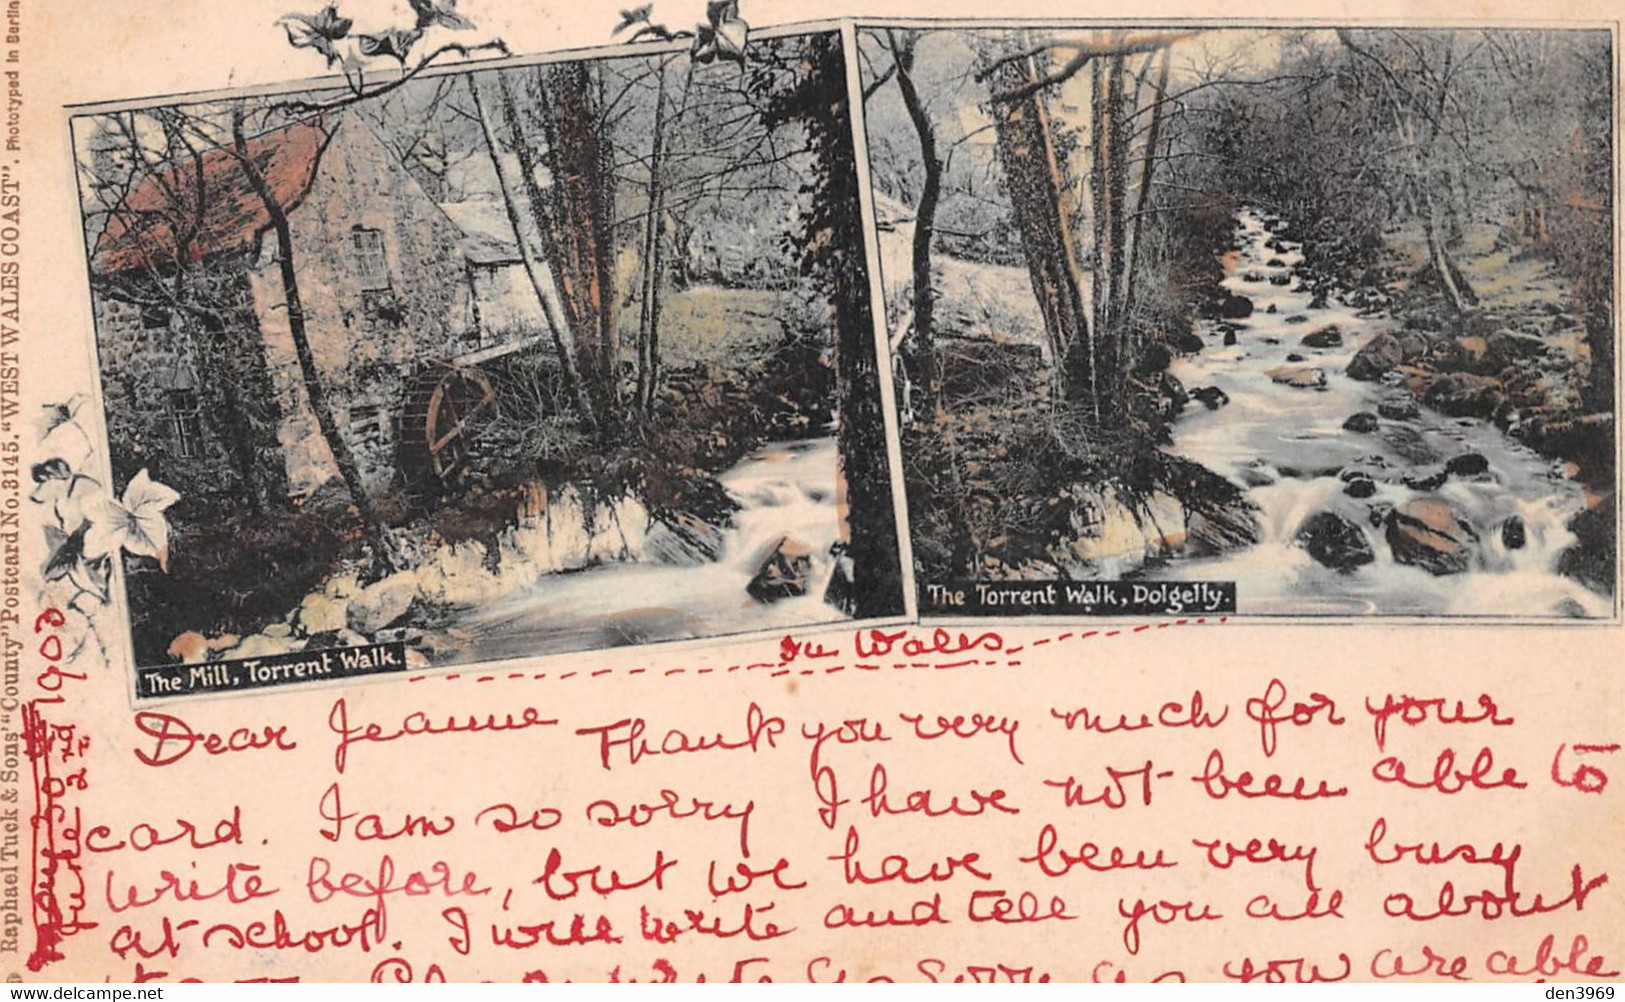 Raphael Tuck & Sons' "County" Postcard No. 3145. "WEST WALES COAST". Phototyped in Berlin
The Mill, Torrent Walk.
The Torrent Walk, Dolgelly.
In Wales
1903
Dear Jeanne Thank you very much for your
card. I am so sorry I have not been able to
write before, but we have been very busy
at school. I will write and tell you all about
write as soon as you are able
delcampe.net
den3969